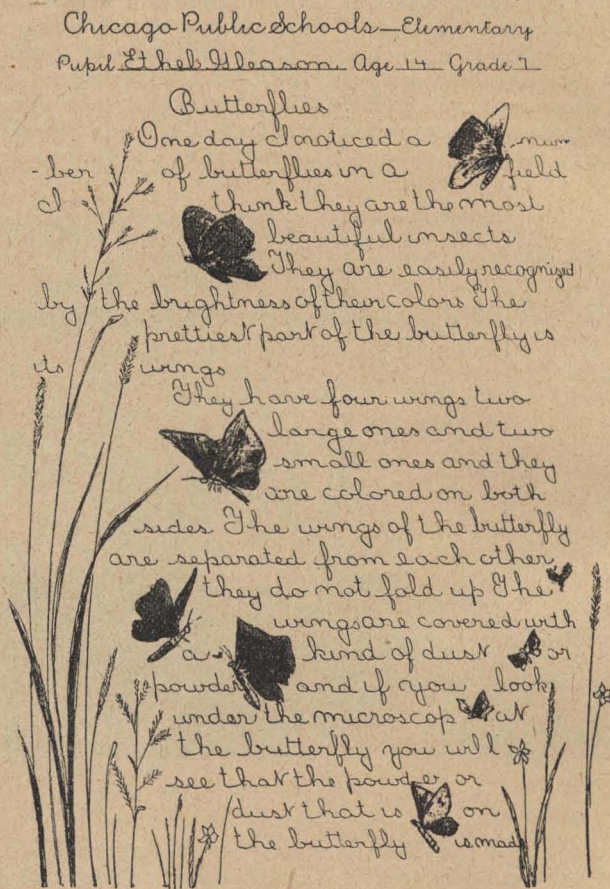 Chicago Public Schools—Elementary
Pupil Ethel Gleason Age 14 Grade 7
Butterflies
One day I noticed a num
-ber of butterflies in a field
I think they are the most
beautiful insects
They are easily recognized
by the brightness of their colors The
prettiest part of the butterfly is
its wings
They have four wings two
large ones and two
small ones and they
are colored on both
sides The wings of the butterfly
are separated from each other
they do not fold up The
wings are covered with
a kind of dust or
powder and if you look
under the microscop at
the butterfly you will
see that the powder or
dust that is on
the butterfly is made